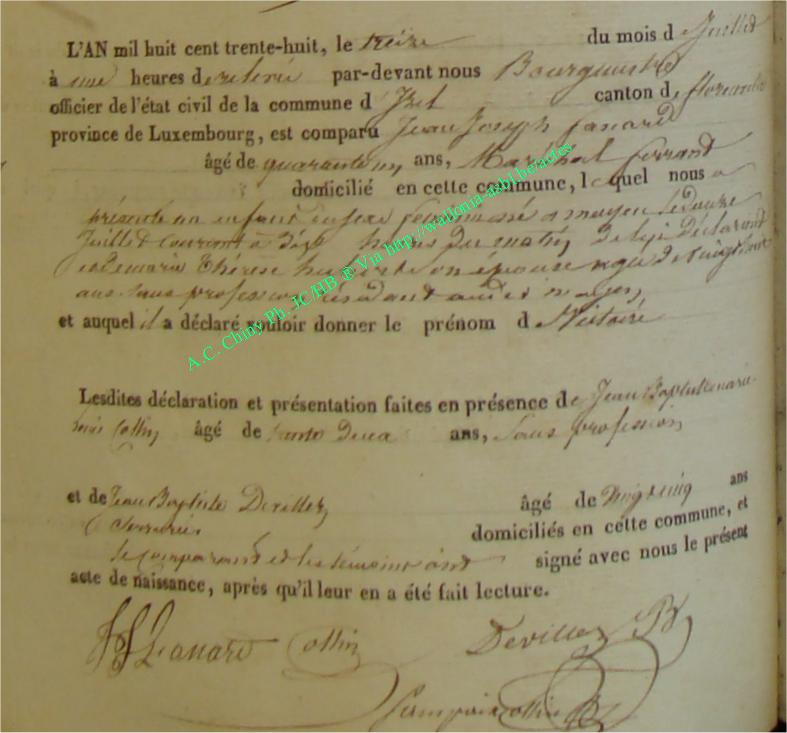 L'AN mil huit cent trente-huit, le treize du mois d e Juillet
à une heures de relevée par-devant nous Bourgmestre
officier de l'état civil de la commune d' Izel canton de florenville
province de Luxembourg, est comparu Jean Joseph Lanard
âgé de quarante un ans, Maréchal ferrand
domicilié en cette commune, lequel nous a
présenté un enfant du sexe
Juillet courant à dix heures du matin, De lui Déclarant
et de marie Thérèse son épouse agée de vingt huit
ans Sans profession, résidant
et auquel il a déclaré vouloir donner le prénom d e Nestaire
A.C. Chiny Ph. JC/HB @ Via http://wallonia-asbl.be/actes
Lesdites déclaration et présentation faites en présence de Jean Baptiste marie
louis Collin, âgé de trente Deux ans, Sans profession,
et de Jean Baptiste Devillez, âgé de vingt cinq ans
Serrurier domiciliés en cette commune, et
le comparant et les témoins ont signé avec nous le présent
acte de naissance, après qu'il leur en a été fait lecture.
JJ Lanard Collin Devillez B
Collin